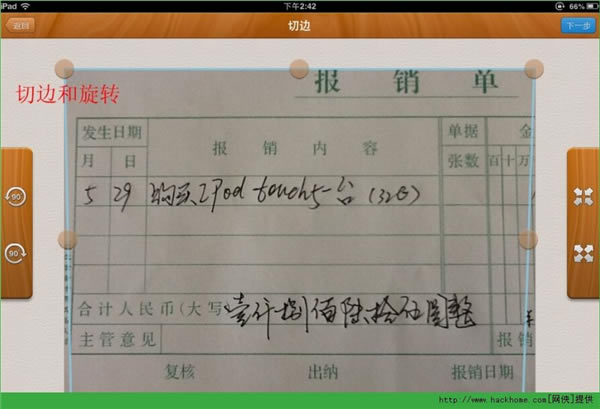 iPad 下午2:42 66%
返回 切边 下一步
切边和旋转
报销单
发生日期 报销内容 单据 金
月 日 张数 百十万
5 29 购买IPod touch5一台(32G)
90
90
合计人民币(大写 壹仟捌佰陆拾伍圆整
主管意见 报销
复核 出纳 报销日期
http://www.hackhome.com[网侠]提供